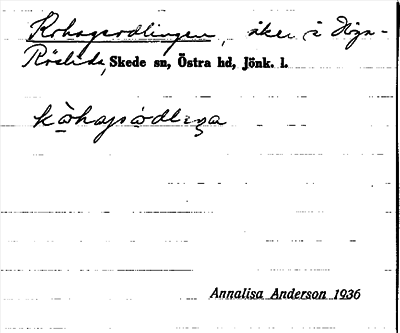 Kohagsodlingen, åker i Höga-
Röslida, Skede sn, Östra hd, Jönk. l.
kòhaɡsòdlıŋa
Annalisa Anderson 1936